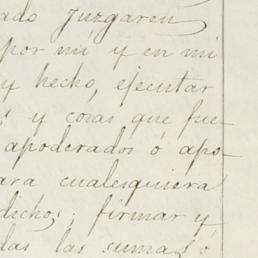 ado juzgaren
por mí y en mi
y hecho, ejecutar
s y cosas que fue-
apoderados ó apo-
ara cualesquiera
dichos; firmar y
das las sumas ó